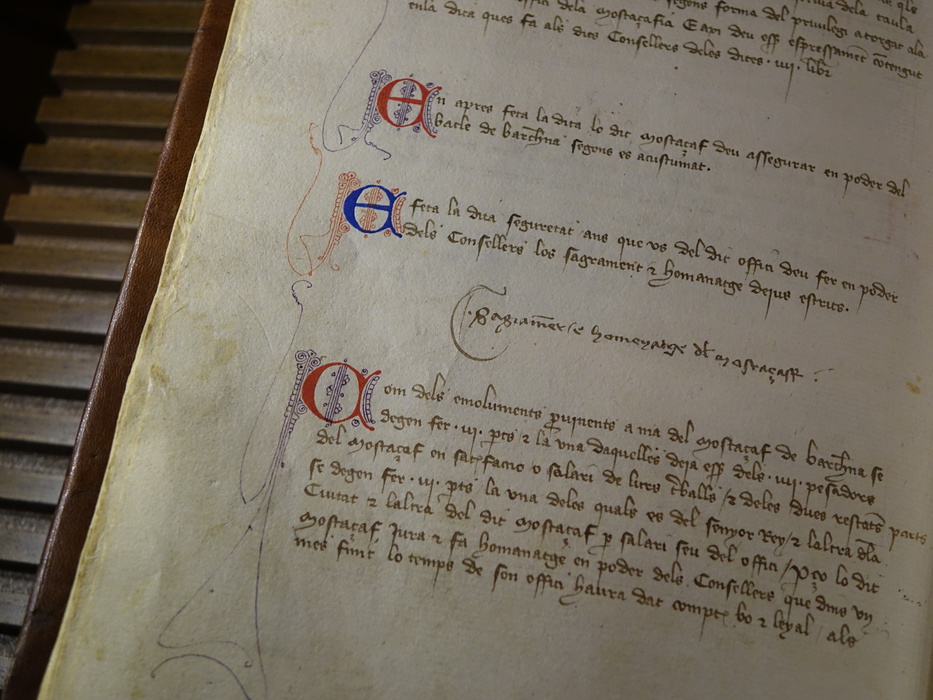 segons forma del privilegi atorgat ala
offici dela Mostaçafia E axi deu ess espressament contengut
enla dita ques fa als dits Consellers deles dites · viii · libr
En apres feta la dita lo dit Mostaçaf deu assegurar en poder del
batle de barchna segons es acustumat.
E feta la dita seguretat ans que us del dit offici deu fer en poder
dels Consellers los sagrament ⁊ homanatge dejus escrits.
Sagrament e homenatge del mostaçaff
Com dels emoluments pvinents a ma del Mostaçaf de barchna se
degen fer · iii · pts ⁊ la una daquelles deja ess dels · iiii · pesadors
del Mostaçaf en satisfactio o salari de lurs tballs / ⁊ deles dues restats parts
se degen fer · iii · pts la una deles quals es del senyor Rey ⁊ laltra dla
Ciutat ⁊ laltra del dit Mostaçaf p salari seu del offici / pço lo dit
Mostaçaf Jura ⁊ fa homanatge en poder dels Consellers que dins un
mes finit lo temps de son offici haura dat compte bo ⁊ leyal als